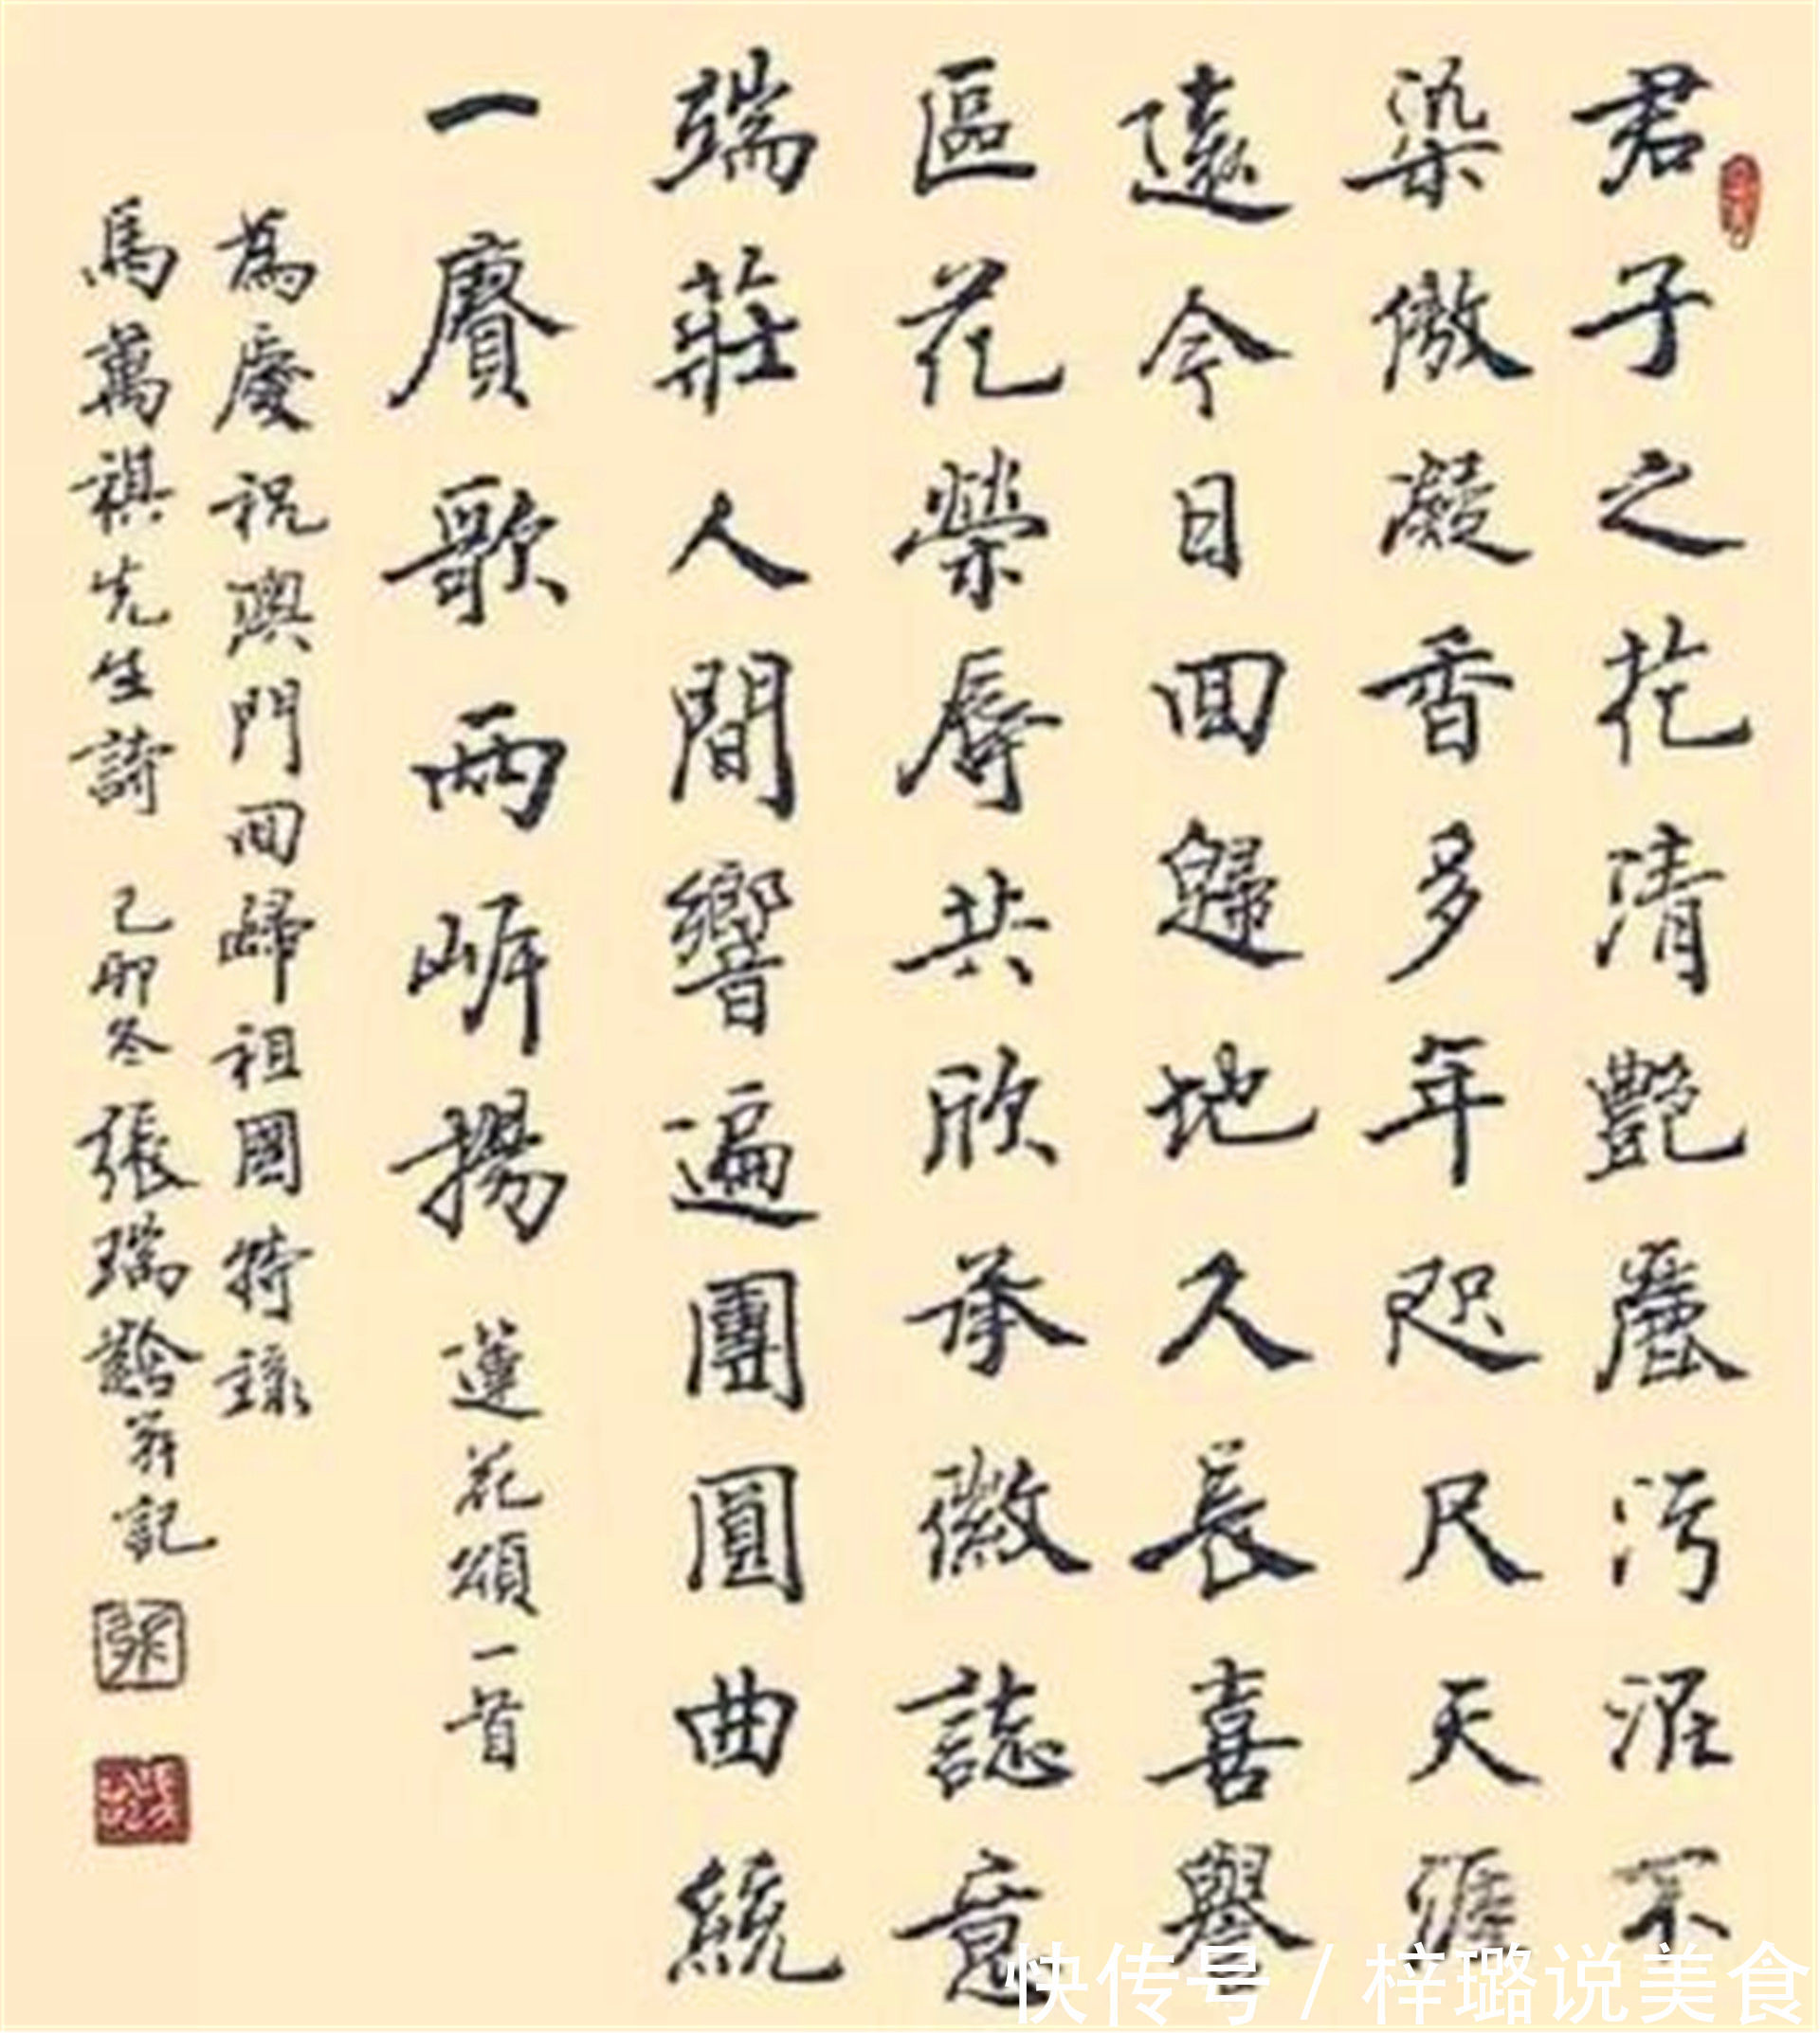 君子之花清艷麗污泥不
染傲凝香多年咫尺天涯
遠今日回歸地久長喜譽
區花榮辱共欣承徽誌意
端莊人間響遍團圓曲統
一賡歌兩岸揚 蓮花頌一首
為慶祝澳門回歸祖國特錄
馬萬祺先生詩 己卯冬 張瑞齡并記
張
快传号/梓璐说美食